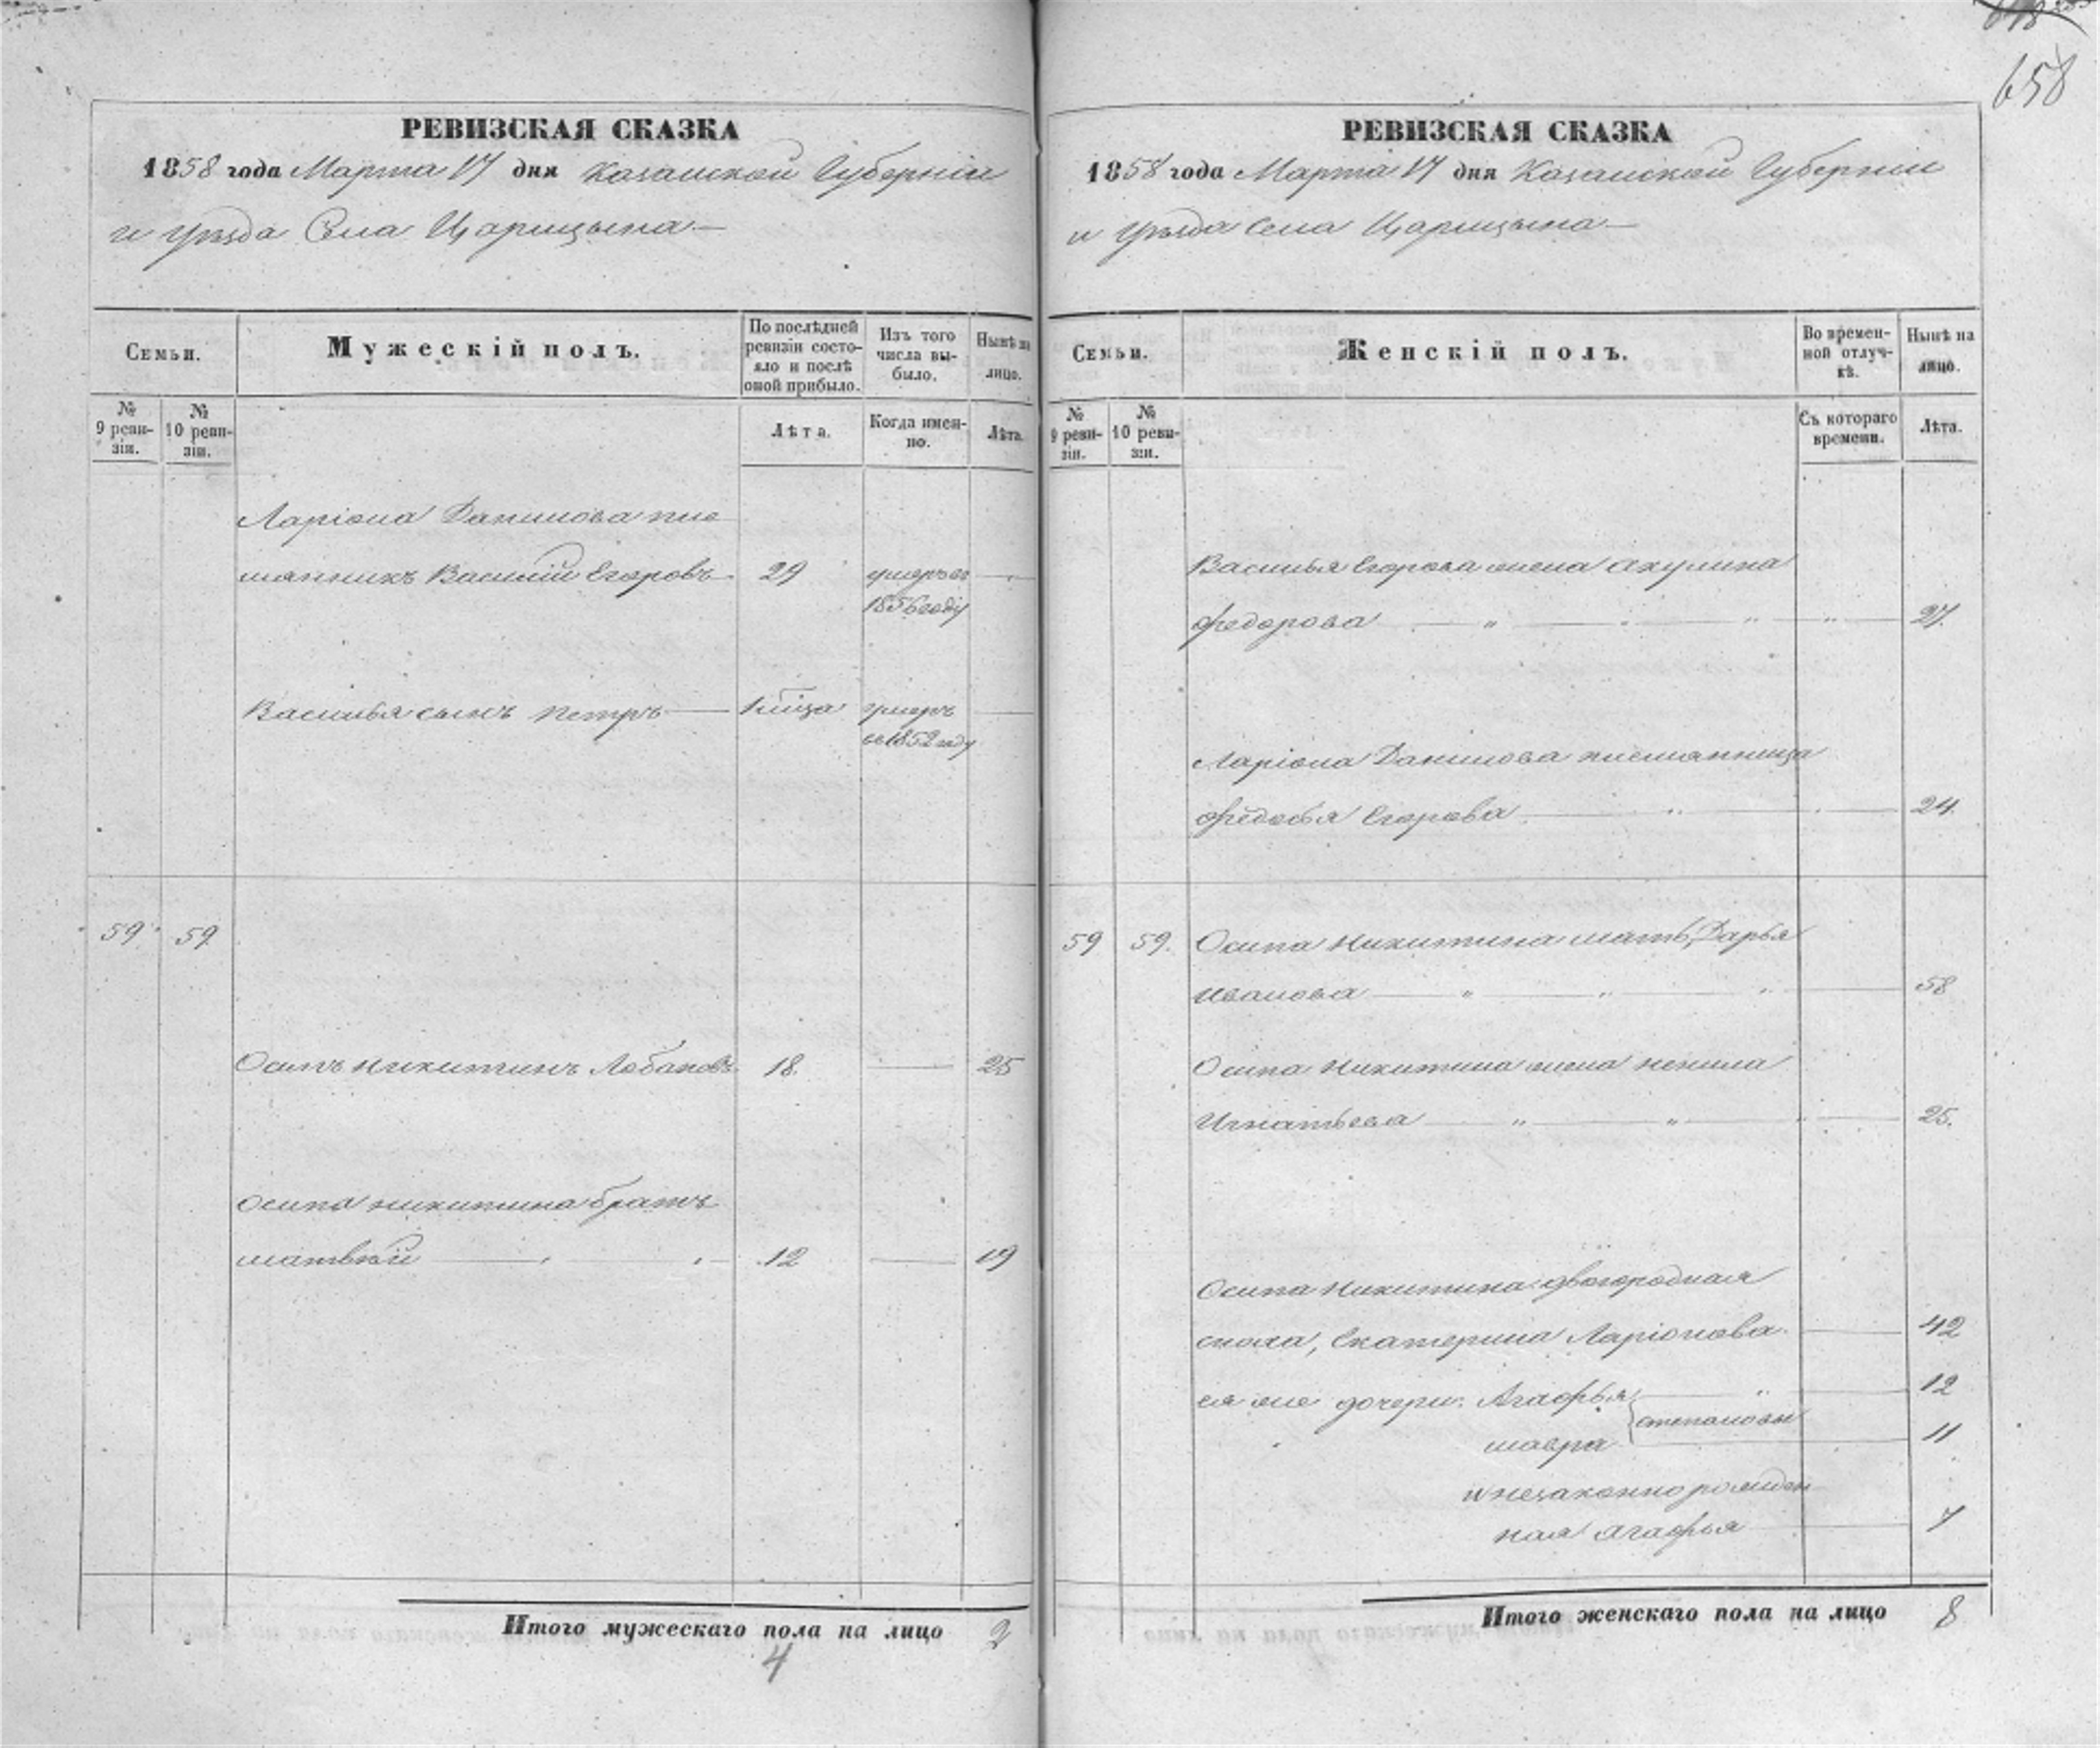 658
РЕВИЗСКАЯ СКАЗКА
1858 года Марта 17 дня Казанской Губерніи
и уѣзда Села Царицына
Семьи.
Мужескій полъ.
По послѣдней ревизіи состояло и послѣ оной прибыло.
Изъ того числа выбыло.
Нынѣ на лицо.
№ 9 ревизіи.
№ 10 ревизіи.
Лѣта.
Когда именно.
Лѣта.
Ларіона Данилова пле
мянникъ Василій Егоровъ 29 умеръ въ
1856 году
Василья сынъ Петръ 1 мѣца умеръ
въ 1852 году
59 59
Осипъ Никитинъ Лобановъ 18 25
Осипа Никитина братъ
Матвѣй 12 19
Итого мужескаго пола на лицо 2
4
РЕВИЗСКАЯ СКАЗКА
1858 года Марта 17 дня Казанской Губерніи
и уѣзда Села Царицына
Семьи.
Женскій полъ.
Во временной отлучкѣ.
Нынѣ на лицо.
№ 9 ревизіи.
№ 10 ревизіи.
Съ котораго времени.
Лѣта.
Василья Егорова жена Акулина
Федорова 27.
Ларіона Данилова племянница
Федосья Егорова 24.
59 59. Осипа Никитина мать, Дарья
Иванова 58
Осипа Никитина жена Ненила
Игнатьева 25.
Осипа Никитина двоюродная
сноха, Екатерина Ларіонова 42
ея же дочери: Агафья 12
Степановы
Мавра 11
и незаконнорожден
ная Агафья 7
Итого женскаго пола на лицо 8